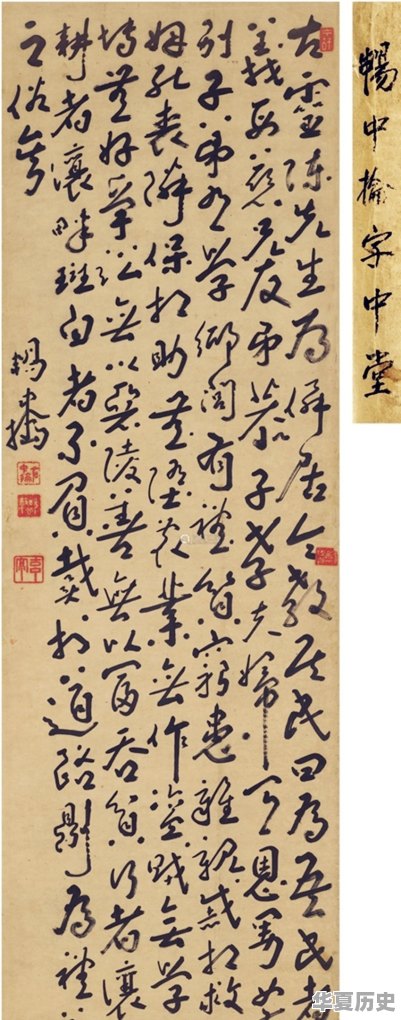 暢中掄字中堂
古靈陳先生為僊居令教其民曰為吾民者
義母慈兄友弟恭子孝夫婦有恩男女
別子弟有學鄉閭有禮貧窮患難親戚相救
姻死喪鄰保相助無墮農業無作盜賊無學
博無好爭訟無以惡陵善無以富吞貧行者讓
耕者讓畔斑白者不負戴於道路則為禮
之俗矣
暢中掄
华夏历史